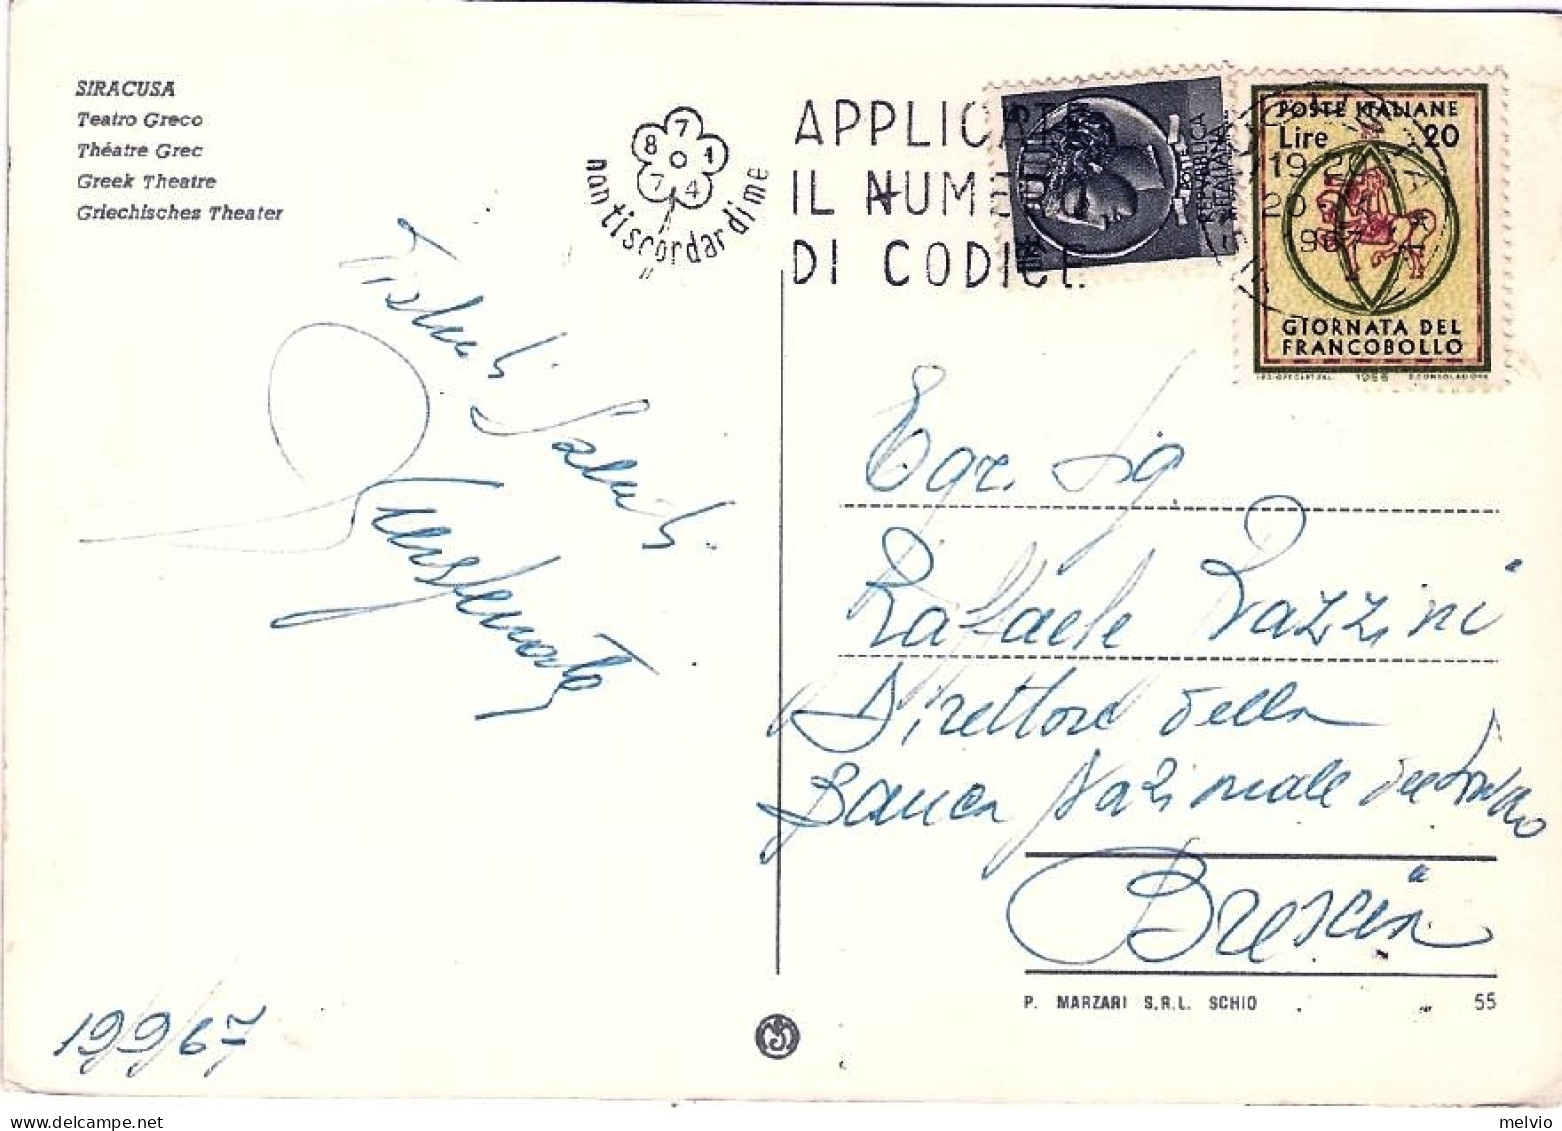 SIRACUSA
Teatro Greco
Théatre Grec
Greek Theatre
Griechisches Theater
8 7 1 7 4
non ti scordar di me
APPLICATE
IL NUMERO
DI CODICE
POSTE ITALIANE
REPUBBLICA ITALIANA
POSTE ITALIANE
Lire 20
19-20
1967
GIORNATA DEL
FRANCOBOLLO
1966
Saluti
Egr. Sig
Raffaele Razzini
Direttore della
Banca Nazionale
Brescia
19/9/67
P. MARZARI S.R.L. SCHIO 55
melvio